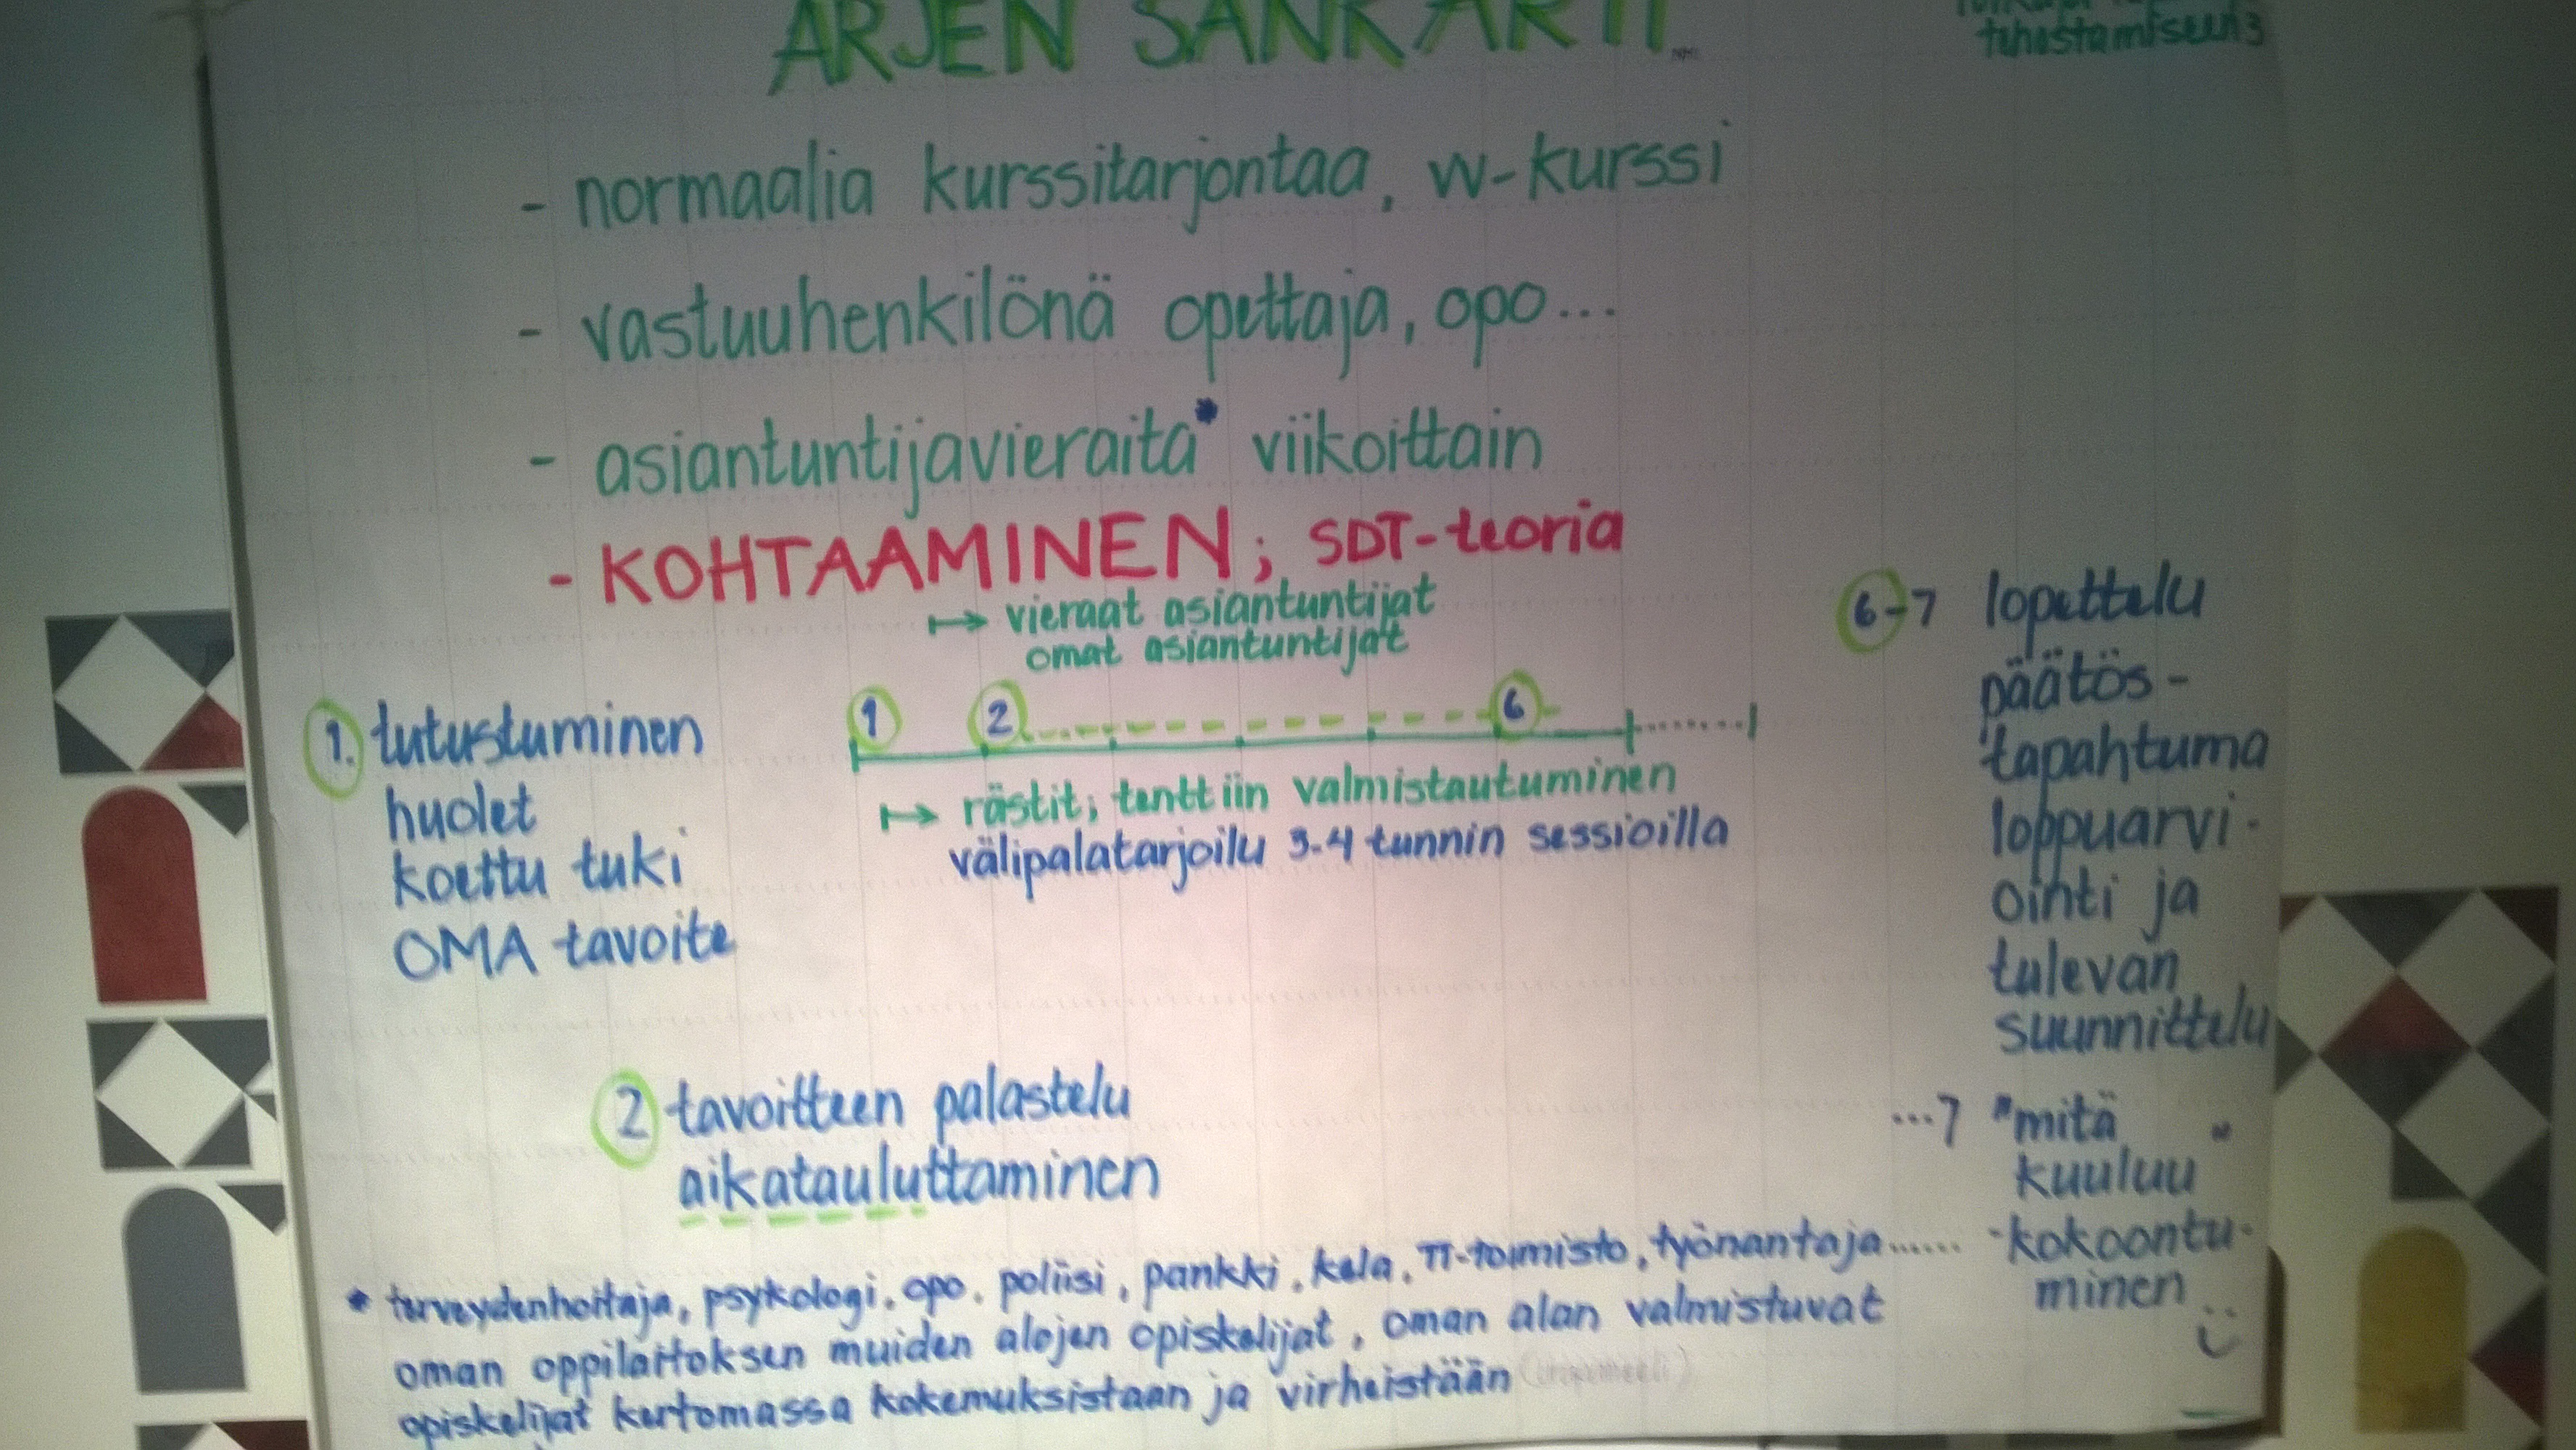 ARJEN SANKARIT
tehostamiseen
- normaalia kurssitarjontaa, VV-kurssi
- vastuuhenkilönä opettaja, opo...
- asiantuntijavieraita* viikoittain
- KOHTAAMINEN; SDT-teoria
↦ vieraat asiantuntijat
omat asiantuntijat
1 2 6
↦ rästit; tenttiin valmistautuminen
välipalatarjoilu 3-4 tunnin sessioilla
1. tutustuminen
huolet
koettu tuki
OMA tavoite
2 tavoitteen palastelu
aikatauluttaminen
6-7 lopettelu
päätös-
tapahtuma
loppuarvi-
ointi ja
tulevan
suunnittelu
...7 "mitä
kuuluu"
-kokoontu-
minen
* terveydenhoitaja, psykologi, opo, poliisi, pankki, kela, TE-toimisto, työnantaja......
oman oppilaitoksen muiden alojen opiskelijat, oman alan valmistuvat
opiskelijat kertomassa kokemuksistaan ja virheistään